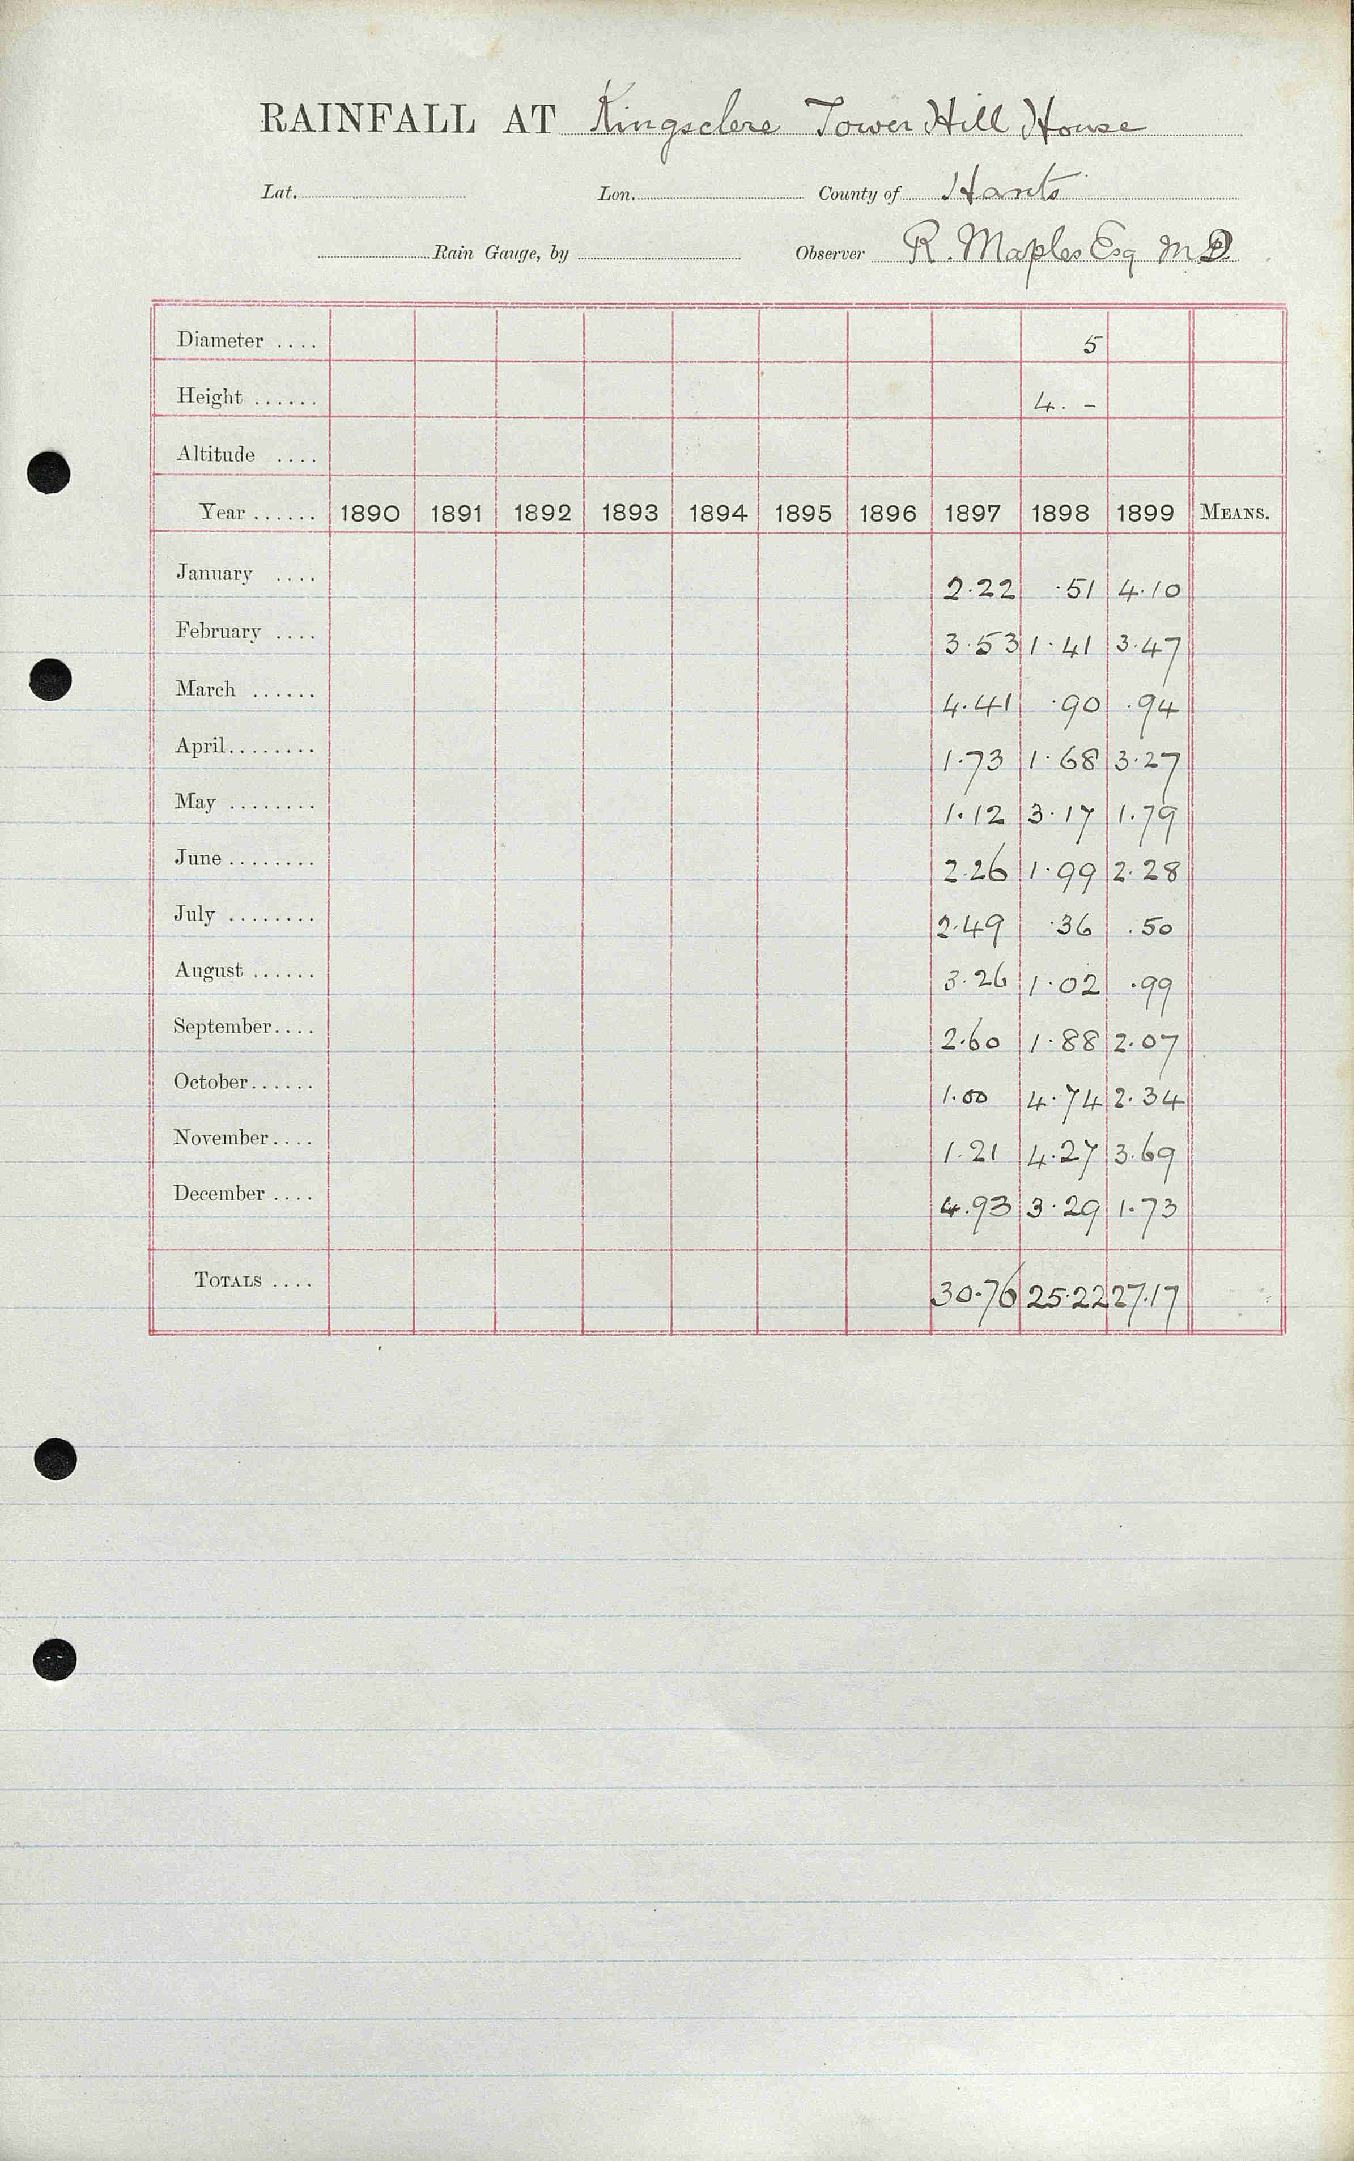 RAINFALL AT Kingsclere Tower Hill House
Lat. Lon. County of Hants
Rain Gauge, by Observer R. Maples Esq M D
Diameter .... 5
Height ...... 4. -
Altitude ....
Year ...... 1890 1891 1892 1893 1894 1895 1896 1897 1898 1899 MEANS.
January .... 2.22 .51 4.10
February .... 3.53 1.41 3.47
March ...... 4.41 .90 .94
April........ 1.73 1.68 3.27
May ........ 1.12 3.17 1.79
June ........ 2.26 1.99 2.28
July ........ 2.49 .36 .50
August ...... 3.26 1.02 .99
September.... 2.60 1.88 2.07
October...... 1.00 4.74 2.34
November.... 1.21 4.27 3.69
December .... 4.93 3.29 1.73
TOTALS .... 30.76 25.22 27.17